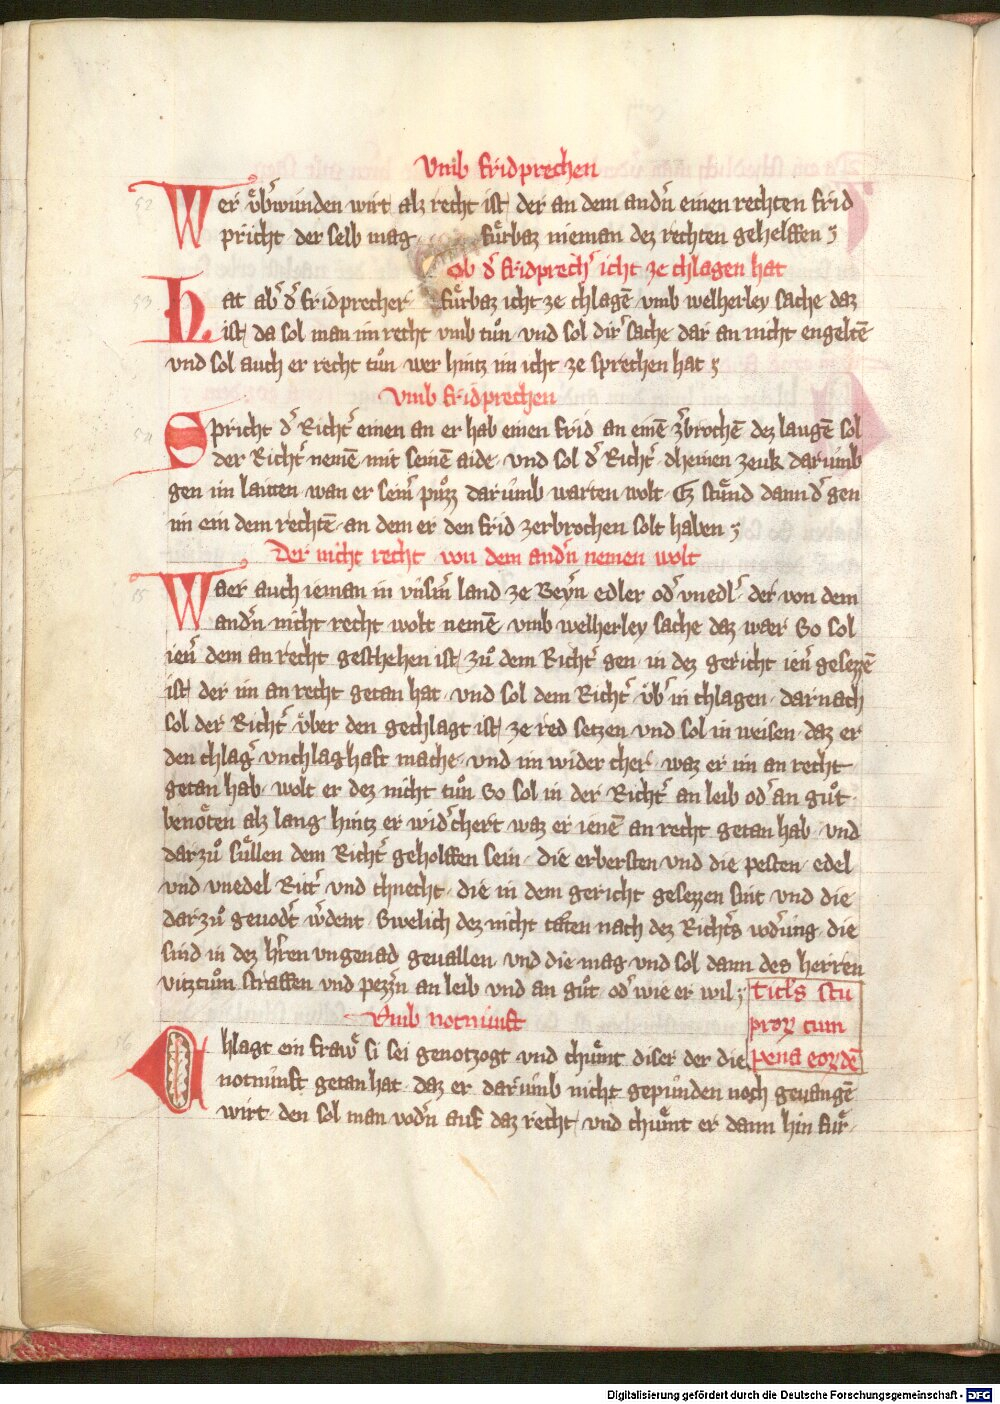 Vmb fridprechen
52 Wer v̊bˀwunden wirt alz recht ist der an dem andˀn einen rechten frid
pricht der selb mag fürbaz nieman dez rechten gehelffen
Ob dˀ fridprechˀ icht ze chlagen hat
53 Hat abˀ dˀ fridprecher fürbaz icht ze chlagē vmb welherley sache daz
ist da sol man im recht vmb tůn vnd sol dirˀ sache dar an nicht engeltē
vnd sol auch er recht tůn wer hintz im icht ze sprechen hat
Vmb fridprechen
54 Spricht dˀ Richtˀ einen an er hab einen frid an einē zˀbrochē dez laugē sol
der Richtˀ nemē mit seinē aide vnd sol dˀ Richtˀ dheinen zeuk darumb
gen im laitten wan er seinˀ půzz darumb warten wolt Ez stůnd dann dˀ gen
im ein dem rechtē an dem er den frid zerbrochen solt haben
Der nicht recht von dem andˀn nemen wolt
55 Waer auch ieman in vnsm̄ land ze Beyrn edler odˀ vnedlˀ der von dem
andˀn nicht recht wolt nemē vmb welherley sache daz waer So sol
ienˀ dem an recht geschehen ist zů dem Richtˀ gen in dez gericht ienˀ gesezzē
ist der im an recht getan hat vnd sol dem Richtˀ v̊bˀ in chlagen darnach
sol der Richtˀ v̊ber den gechlagt ist ze red setzen vnd sol in weisen daz er
den chlagˀ vnchlaghaft mache vnd im wider cher waz er im an recht
getan hab wolt er dez nicht tůn So sol in der Richtˀ an leib odˀ an gůt
benöten alz lang hintz er widˀchert waz er ienē an recht getan hab vnd
darzů süllen dem Richtˀ geholffen sein die erbersten vnd die pesten edel
vnd vnedel Rittˀ vnd chnecht die in dem gericht gesezzen sint vnd die
darzů geuodˀt wˀdent Swelich dez nicht taten nach dez Richtˀs vodˀung die
sind in dez hˀren vngenad geuallen vnd die mag vnd sol dann des herren
vitztům straffen vnd pezzˀn an leib vnd an gůt odˀ wie er wil
titlˀs stu
Vmb notnunft
proꝝ cum
56 Chlagt ein fraw si sei genotzogt vnd chůmt diser der die
pena eoꝝdē
notnunft getan hat daz er darumb nicht gepunden noch geuangē
wirt den sol man vodˀn auf daz recht vnd chůmt er dann hin für
Digitalisierung gefördert durch die Deutsche Forschungsgemeinschaft - DFG